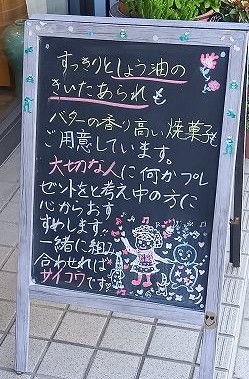 すっきりとしょう油の
きいたあられも
バターの香り高い焼菓子も
ご用意しています。
大切な人に何かプレ
ゼントをと考え中の方に
心からおす
すめします!!
一緒に組み
合わせれば
サイコウです